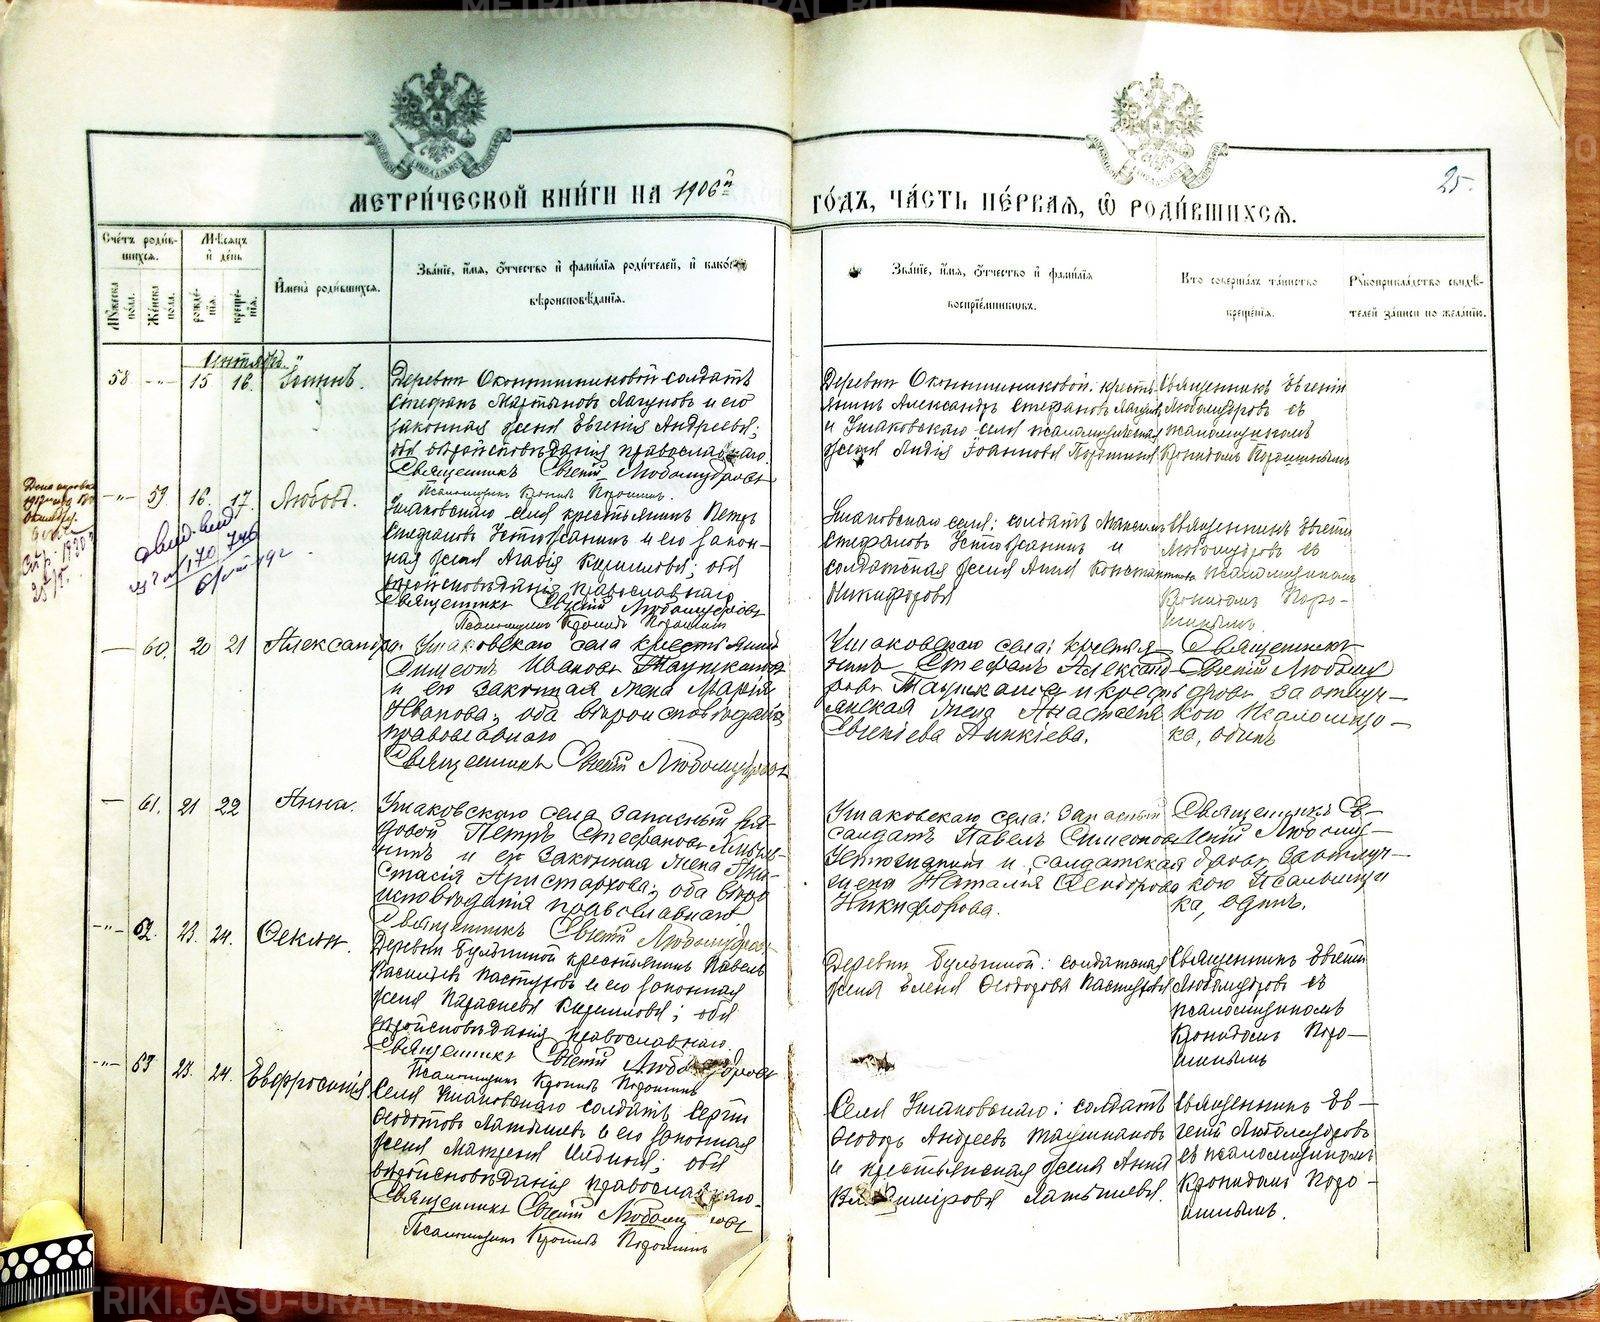 METRIKI.GASU-URAL.RU
METRIKI.GASU-URAL.RU
25.
МЕТРИ́ЧЕСКОЙ КНИ́ГИ НА 1906й
ГО́ДЪ, ЧА́СТЬ ПЕ́РВАЯ, Ѡ РОДИ́ВШИХСЯ.
Сче́тъ роди́в-
шихся.
Му́жеска по́ла.
Же́нска по́ла.
Мѣ́сяцъ
и де́нь
рожде́нїя.
креще́нїя.
И́мена роди́вшихся.
Зва́нїе, и́мя, о́тчество и фами́лїя роди́телей, и како́
вѣроисповѣ́данїя.
Зва́нїе, и́мя, о́тчество и фами́лїя
воспрїе́мниковъ.
Кто соверша́лъ та́инство
креще́нїя.
Рꙋкоприкла́дство свидѣ́-
телей за́писи по жела́нїю.
58 -"- 15 16. Іоаннъ.
Деревни солдатъ
Стефанъ Мартыновъ Лагуновъ и его
законная жена Евгенія Андреева;
оба вѣроисповѣданія православнаго.
Священникъ Евгеній Любомудровъ
Псаломщикъ Кронидъ Порошинъ.
Деревни кресть-
янинъ Александръ Стефановъ Лагуновъ
и Ушаковскаго села псаломщическая
жена Лидія Іоаннова Порошина
Священникъ Евгеній
Любомудровъ съ
псаломщикомъ
Кронидомъ Порошинымъ
-"- 59 16. 17. Любовь.
Ушаковскаго села крестьянинъ Петръ
Стефановъ Устюжанинъ и его закон-
ная жена Агафія Кириллова; оба
вѣроисповѣданія православнаго
Священникъ Евгеній Любомудровъ
Псаломщикъ Кронидъ Порошинъ
Ушаковскаго села: солдатъ Максимъ
Стефановъ Устюжанинъ и
солдатская жена Анна Константинова
Никифорова
Священникъ Евгеній
Любомудровъ съ
псаломщикомъ
Кронидомъ Поро-
шинымъ.
— 60. 20 21 Александра.
Ушаковскаго села крестьянинъ
Симеонъ Ивановъ Таушкановъ
и его законная жена Марія
Иванова; оба вѣроисповѣданія
православнаго
Священникъ Евгеній Любомудровъ
Ушаковскаго села: крестья-
нинъ Стефанъ Александ-
ровъ Таушкановъ и кресть-
янская жена Анастасія
Евгеніева Аникіева.
Священникъ
Евгеній Любому-
дровъ за отлуч-
кою псаломщи-
ка, одинъ
— 61. 21 22 Анна.
Ушаковскаго села запасный ря-
довой Петръ Стефановъ
и его законная жена Ана-
стасія Аристархова; оба вѣро-
исповѣданія православнаго
Священникъ Евгеній Любомудровъ
Ушаковскаго села: запасный
солдатъ Павелъ Симеоновъ
Устюжанинъ и солдатская
жена Наталія Ѳеодорова
Никифорова.
Священникъ Ев-
геній Любому-
дровъ за отлуч-
кою псаломщи-
ка, одинъ.
-"- 62. 23. 24. Ѳекла.
Деревни Булыгиной крестьянинъ Павелъ
Васильевъ Пастуховъ и его законная
жена Параскева Кириллова; оба
вѣроисповѣданія православнаго.
Священникъ Евгеній Любомудровъ
Псаломщикъ Кронидъ Порошинъ
Деревни Булыгиной: солдатская
жена Елена Ѳеодорова Пастухова
Священникъ Евгеній
Любомудровъ съ
псаломщикомъ
Кронидомъ Поро-
шинымъ
-"- 63 23. 24. Евфросинія
Села Ушаковскаго солдатъ Сергій
Ѳедотовъ Латышевъ и его законная
жена Матрена Ильина; оба
вѣроисповѣданія православнаго.
Священникъ Евгеній Любомудровъ
Псаломщикъ Кронидъ Порошинъ
Села Ушаковскаго: солдатъ
Ѳеодоръ Андреевъ Таушкановъ
и крестьянская жена Анна
Владимірова Латышева.
Священникъ Ев-
геній Любомудровъ
съ псаломщикомъ
Кронидомъ Поро-
шинымъ.
METRIKI.GASU-URAL.RU
METRIKI.GASU